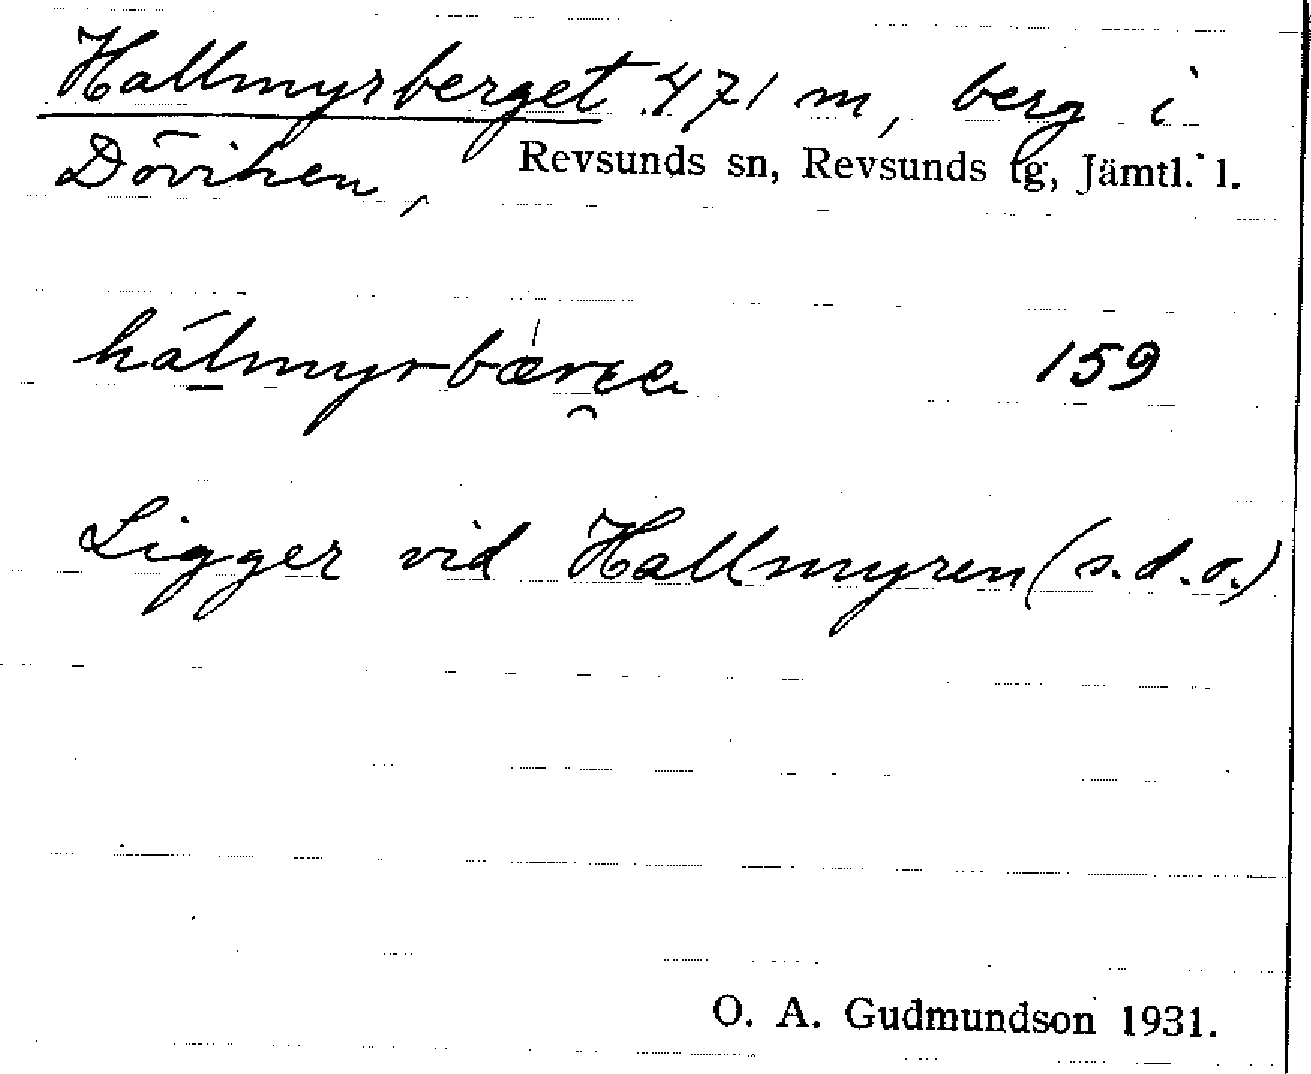 Hallmyrberget 471 m, berg i
Döviken, Revsunds sn, Revsunds tg, Jämtl. l.
159
Ligger vid Hallmyren (s.d.o.)
O. A. Gudmundson 1931.